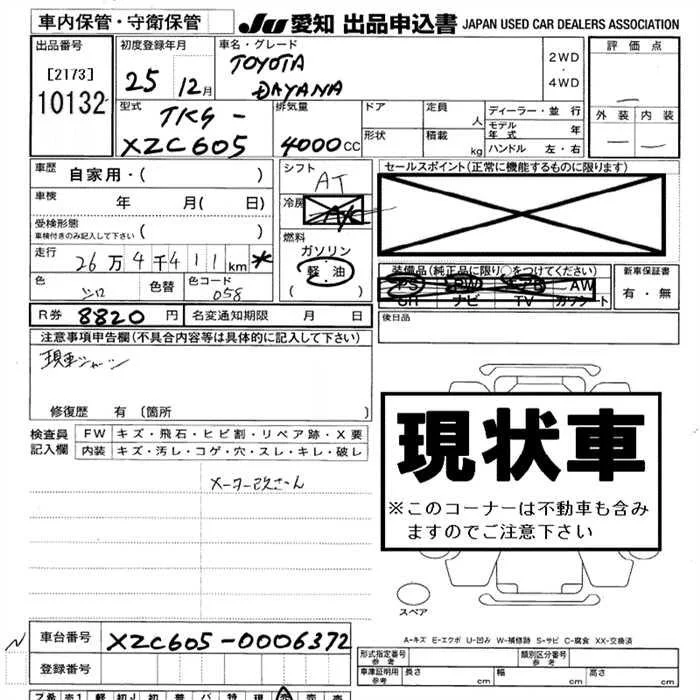 車内保管・守衛保管 JU 愛知 出品申込書 JAPAN USED CAR DEALERS ASSOCIATION
出品番号 初度登録年月 車名・グレード 評価点
[2173] 25 12月 TOYOTA 2WD
10132 DAYANA 4WD
型式 TKG- 排気量 ドア 定員 人 ディーラー・並行 外装 内装
XZC605 4000cc 形状 積載 kg モデル年式 年
ハンドル 左・右
車歴 自家用・( ) シフト AT セールスポイント(正常に機能するものに限ります)
車検 年 月( 日) 冷房
受検形態 ( ) 燃料
車検付きのみ記入して下さい ガソリン
走行 26万4千411km * 軽油 装備品(純正品に限り○をつけてください) 新車保証書
色 シロ 色替 色コード 058 ( ) PS PW AW 有・無
ナビ TV
R券 8820円 名変通知期限 月 日 後日品
注意事項申告欄(不具合内容等は具体的に記入して下さい)
現車
修復歴 有 〔箇所 〕
検査員 FW キズ・飛石・ヒビ割・リペア跡・X要
記入欄 内装 キズ・汚レ・コゲ・穴・スレ・キレ・破レ
メーター改ざん
現状車
※このコーナーは不動車も含み
ますのでご注意下さい
スペア
A-キズ E-エクボ U-凹み W-補修跡 S-サビ C-腐食 XX-交換済
N 車台番号 XZC605-0006372
登録番号
形式指定番号 参考 類別区分番号 参考
車庫証明用 参考 長さ cm 幅 cm 高さ cm